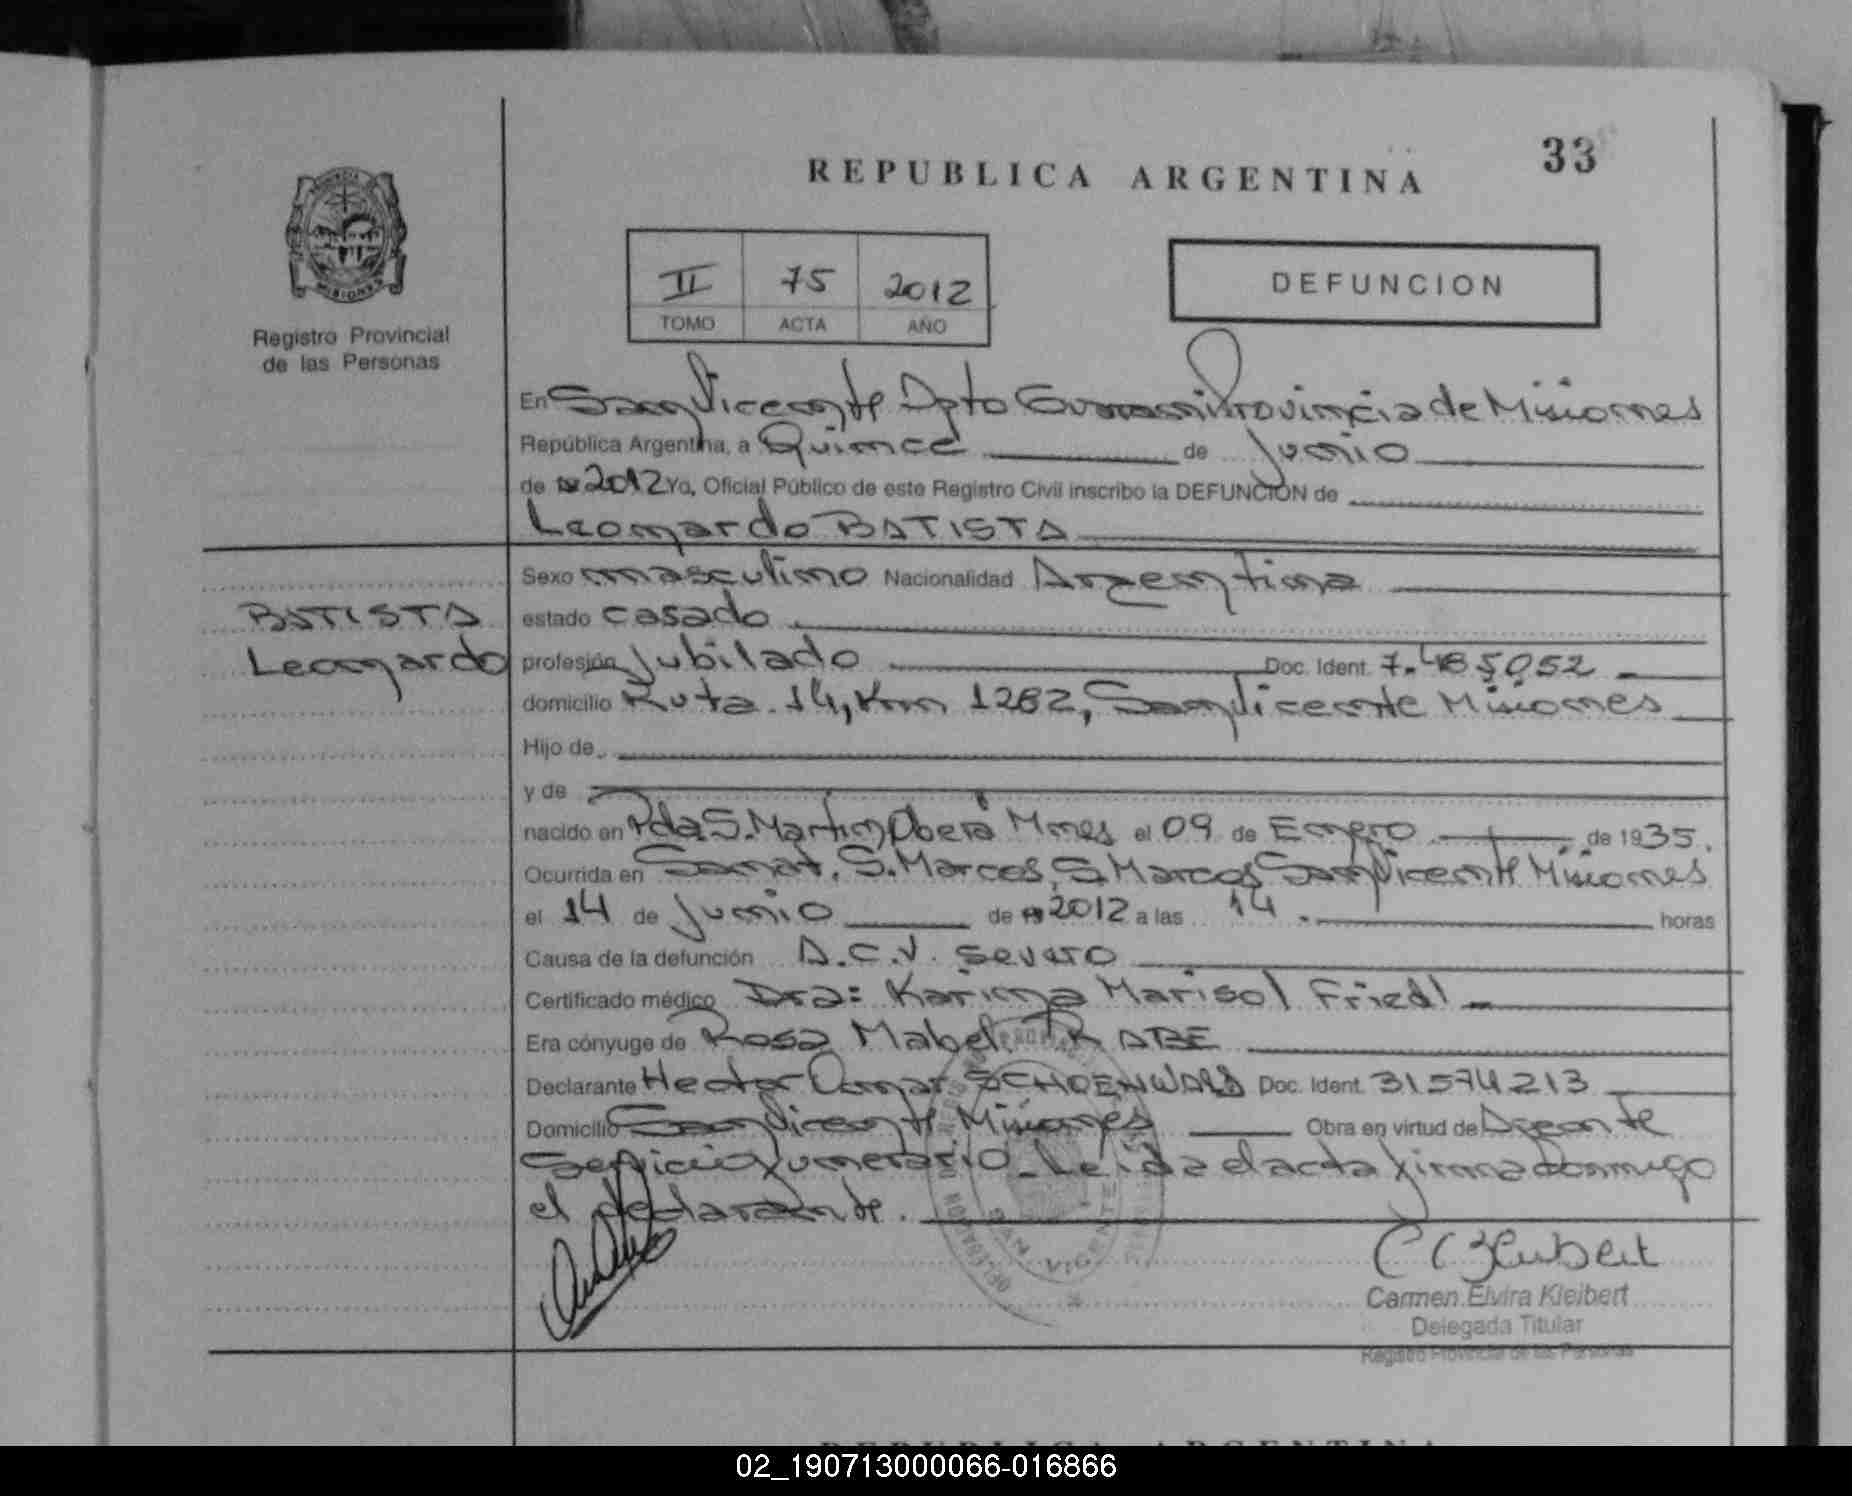 33
REPUBLICA ARGENTINA
II 75 2012
TOMO ACTA AÑO
DEFUNCION
Registro Provincial
de las Personas
En San Vicente Dpto Guarani Provincia de Misiones
República Argentina, a Quince de Junio
de 2012 Yo, Oficial Público de este Registro Civil inscribo la DEFUNCION de
Leonardo BATISTA
BATISTA
Leonardo
Sexo masculino Nacionalidad Argentina
estado casado
profesión Jubilado Doc. Ident. 7.485052
domicilio Ruta 14, Km 1282, San Vicente Misiones
Hijo de
y de
nacido en Pda S. Martin Oberá Mnes el 09 de Enero de 1935.
Ocurrida en Sanat. S. Marcos, S. Marcos San Vicente Misiones
el 14 de Junio de 2012 a las 14. horas
Causa de la defunción A.C.V. severo
Certificado médico Dra: Karina Marisol Friedl
Era cónyuge de Rosa Mabel RABE
Declarante Hector Omar SCHOENWALD Doc. Ident. 31574213
Domicilio San Vicente Misiones Obra en virtud de Agente
Servicio Funerario. Leida el acta firma conmigo
el declarante.
DELEGACION SAN VICENTE
Carmen Elvira Kleibert
Delegada Titular
Registro Provincial de las Personas
REPUBLICA ARGENTINA
02_190713000066-016866